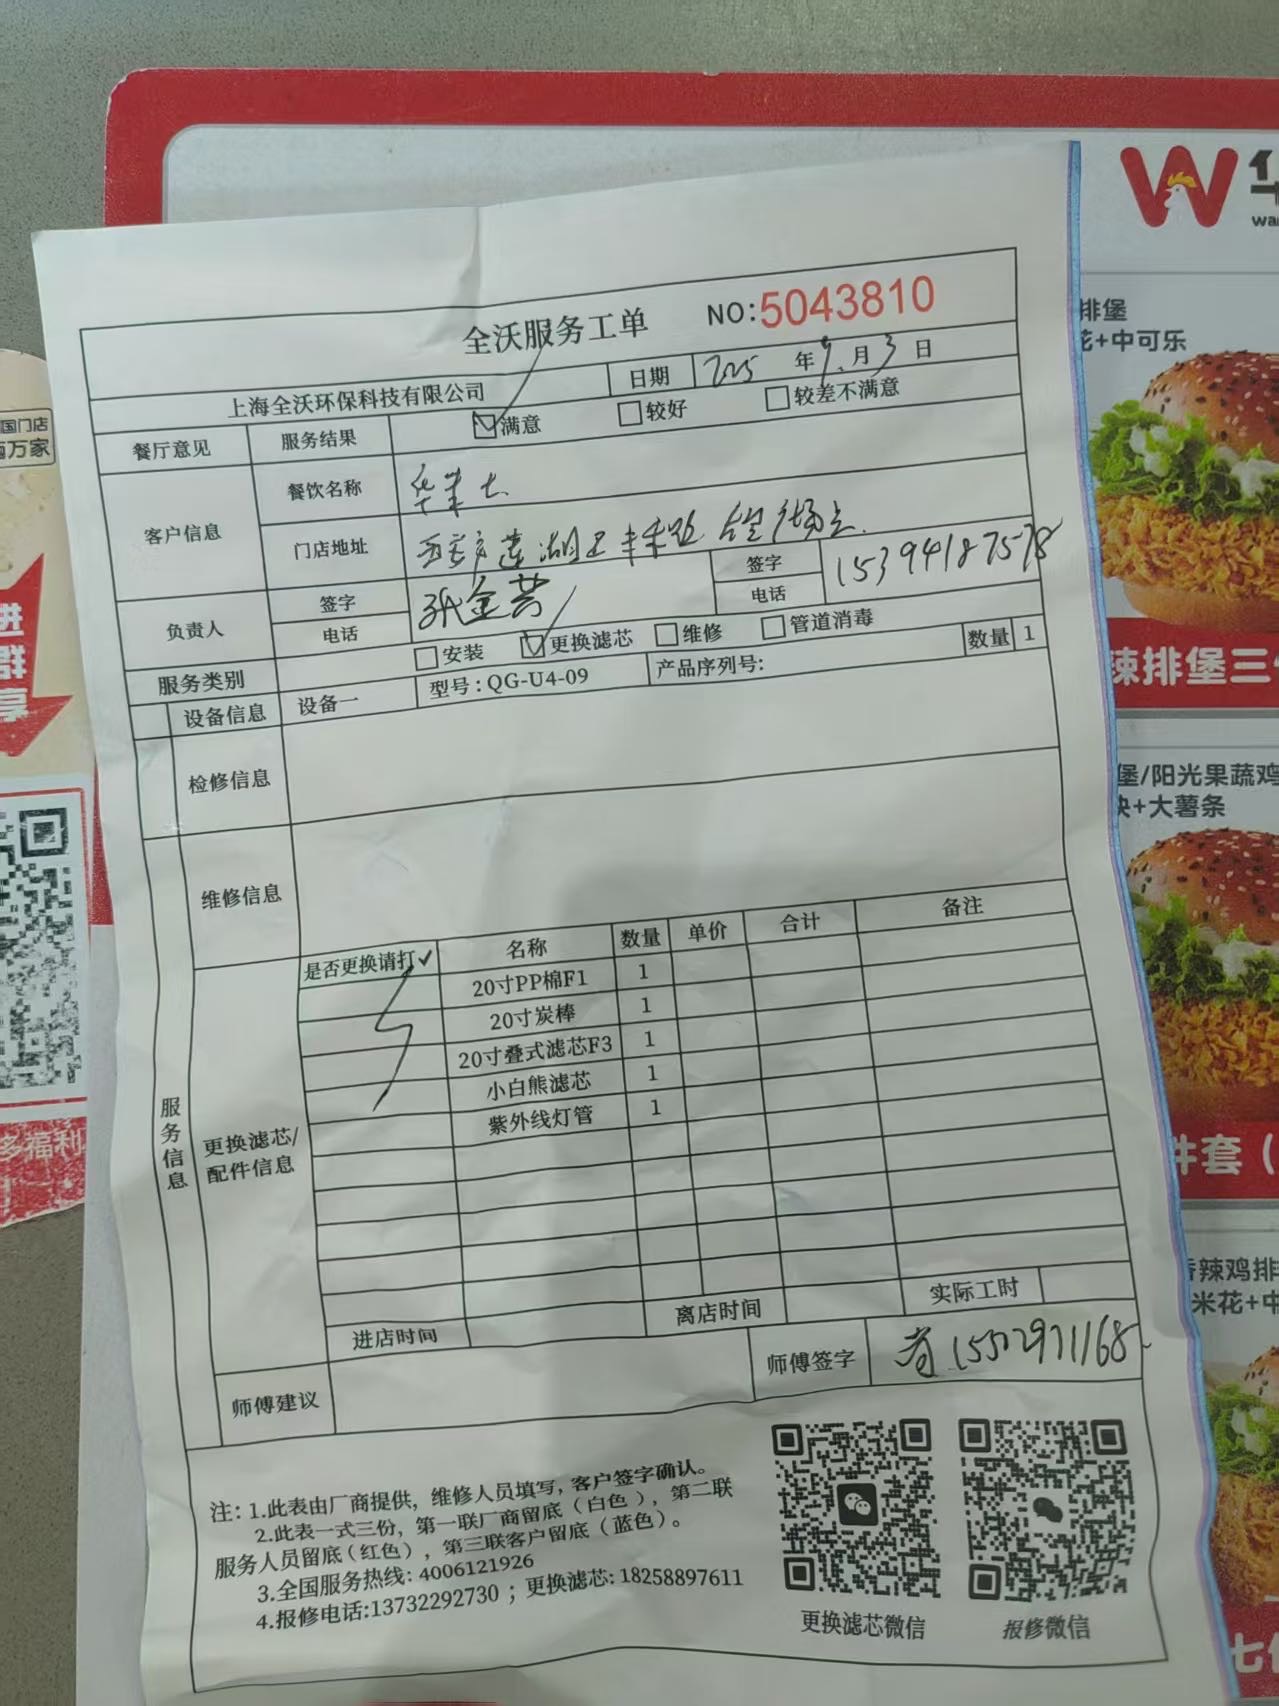 全沃服务工单 NO:5043810
上海全沃环保科技有限公司 日期 2025 年 9 月 3 日
餐厅意见 服务结果 满意 较好 较差不满意
客户信息 餐饮名称 华莱士
门店地址 西安市莲湖区丰禾路
负责人 签字 电话 签字 电话 15394187578
服务类别 安装 更换滤芯 维修 管道消毒
设备信息 设备一 型号:QG-U4-09 产品序列号: 数量 1
检修信息
维修信息
服务信息
更换滤芯/配件信息
是否更换请打✓ 名称 数量 单价 合计 备注
20寸PP棉F1 1
20寸炭棒 1
20寸叠式滤芯F3 1
小白熊滤芯 1
紫外线灯管 1
进店时间 离店时间 实际工时
师傅建议 师傅签字
注: 1.此表由厂商提供，维修人员填写，客户签字确认。
2.此表一式三份，第一联厂商留底（白色），第二联
服务人员留底（红色），第三联客户留底（蓝色）。
3.全国服务热线: 4006121926
4.报修电话:13732292730 ；更换滤芯: 18258897611
更换滤芯微信 报修微信
国门店
万家
进
群
享
多福利
W
排堡
花+中可乐
辣排堡三
堡/阳光果蔬鸡
块+大薯条
件套（
香辣鸡排
米花+中
七